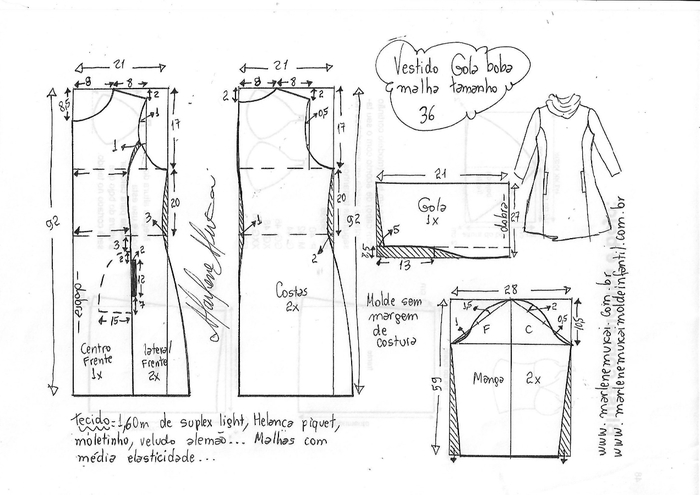 Vestido Gola boba
malha tamanho
36
21
8
8
8,5
2
1
17
1
20
92
3
3
2
2
12
7
15
dobra
Centro
Frente
1x
lateral
Frente
2x
Marlene Mukai
21
8
8
2
2
0,5
17
20
92
1
2
Costas
2x
21
Gola
1x
dobra
27
5
2,5
13
Molde sem
margem
de
costura
28
1,5
2
1
F
C
0,5
10,5
59
Manga
2x
www.marlenemukai.com.br
www.marlenemukaimoldeinfantil.com.br
tecido=1,60m de suplex light, Helanca piquet,
moletinho, veludo alemão... Malhas com
média elasticidade...